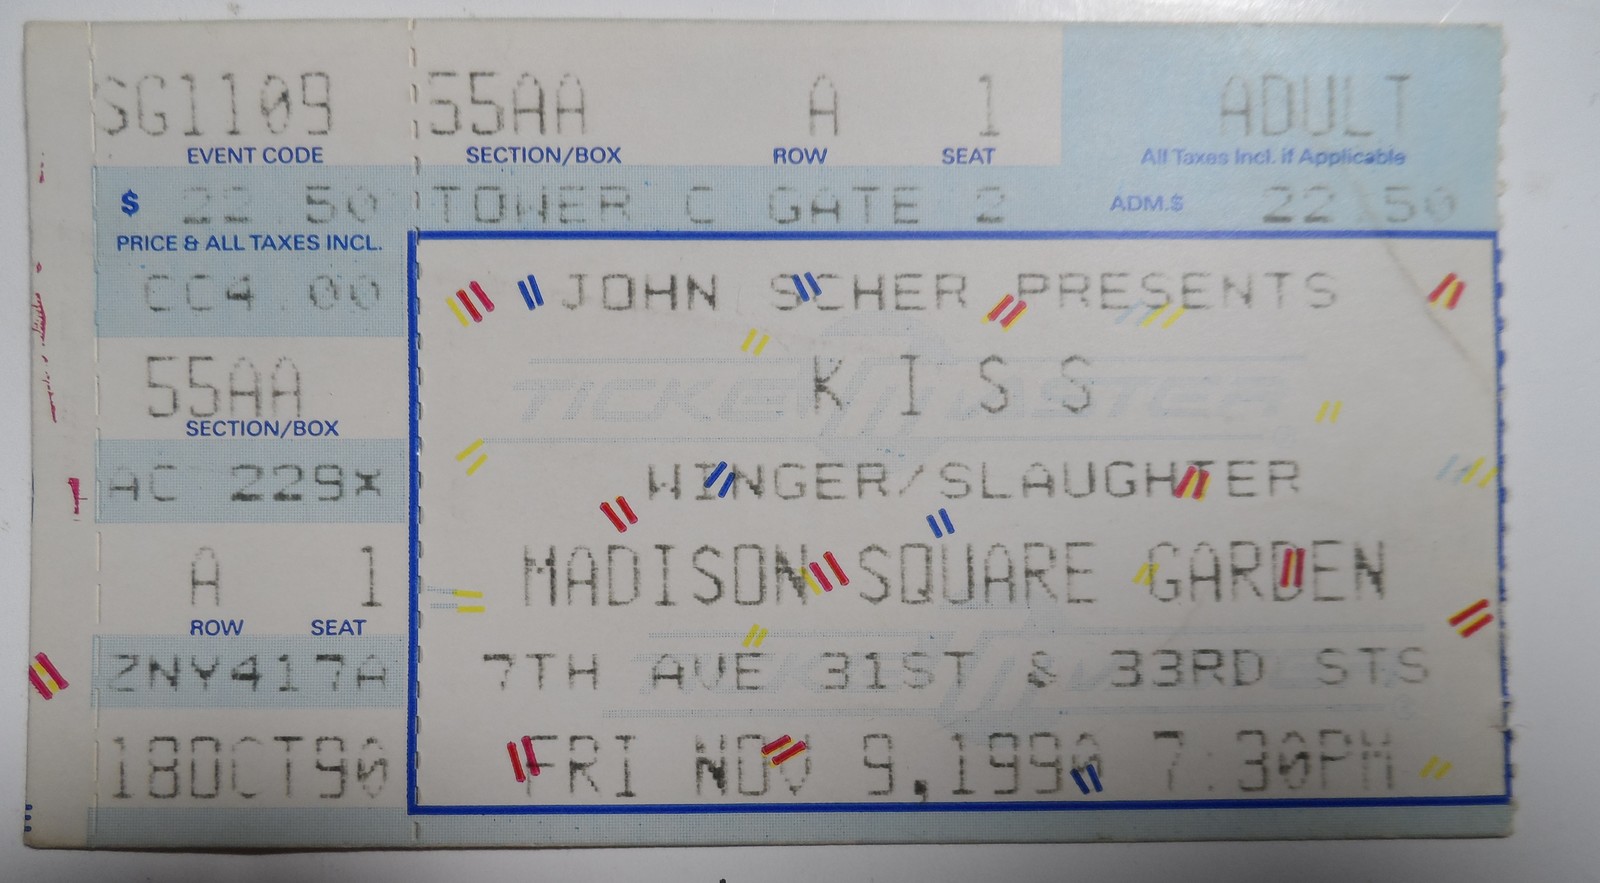 SG1109
EVENT CODE
$ 22.50
PRICE & ALL TAXES INCL.
CC4.00
55AA
SECTION/BOX
AC 229X
A 1
ROW SEAT
ZNY417A
18OCT90
55AA A 1 ADULT
SECTION/BOX ROW SEAT All Taxes Incl. if Applicable
TOWER C GATE 2 ADM.$ 22.50
JOHN SCHER PRESENTS
K I S S
TICKETMASTER
WINGER/SLAUGHTER
MADISON SQUARE GARDEN
7TH AVE 31ST & 33RD STS
FRI NOV 9,1990 7:30PM